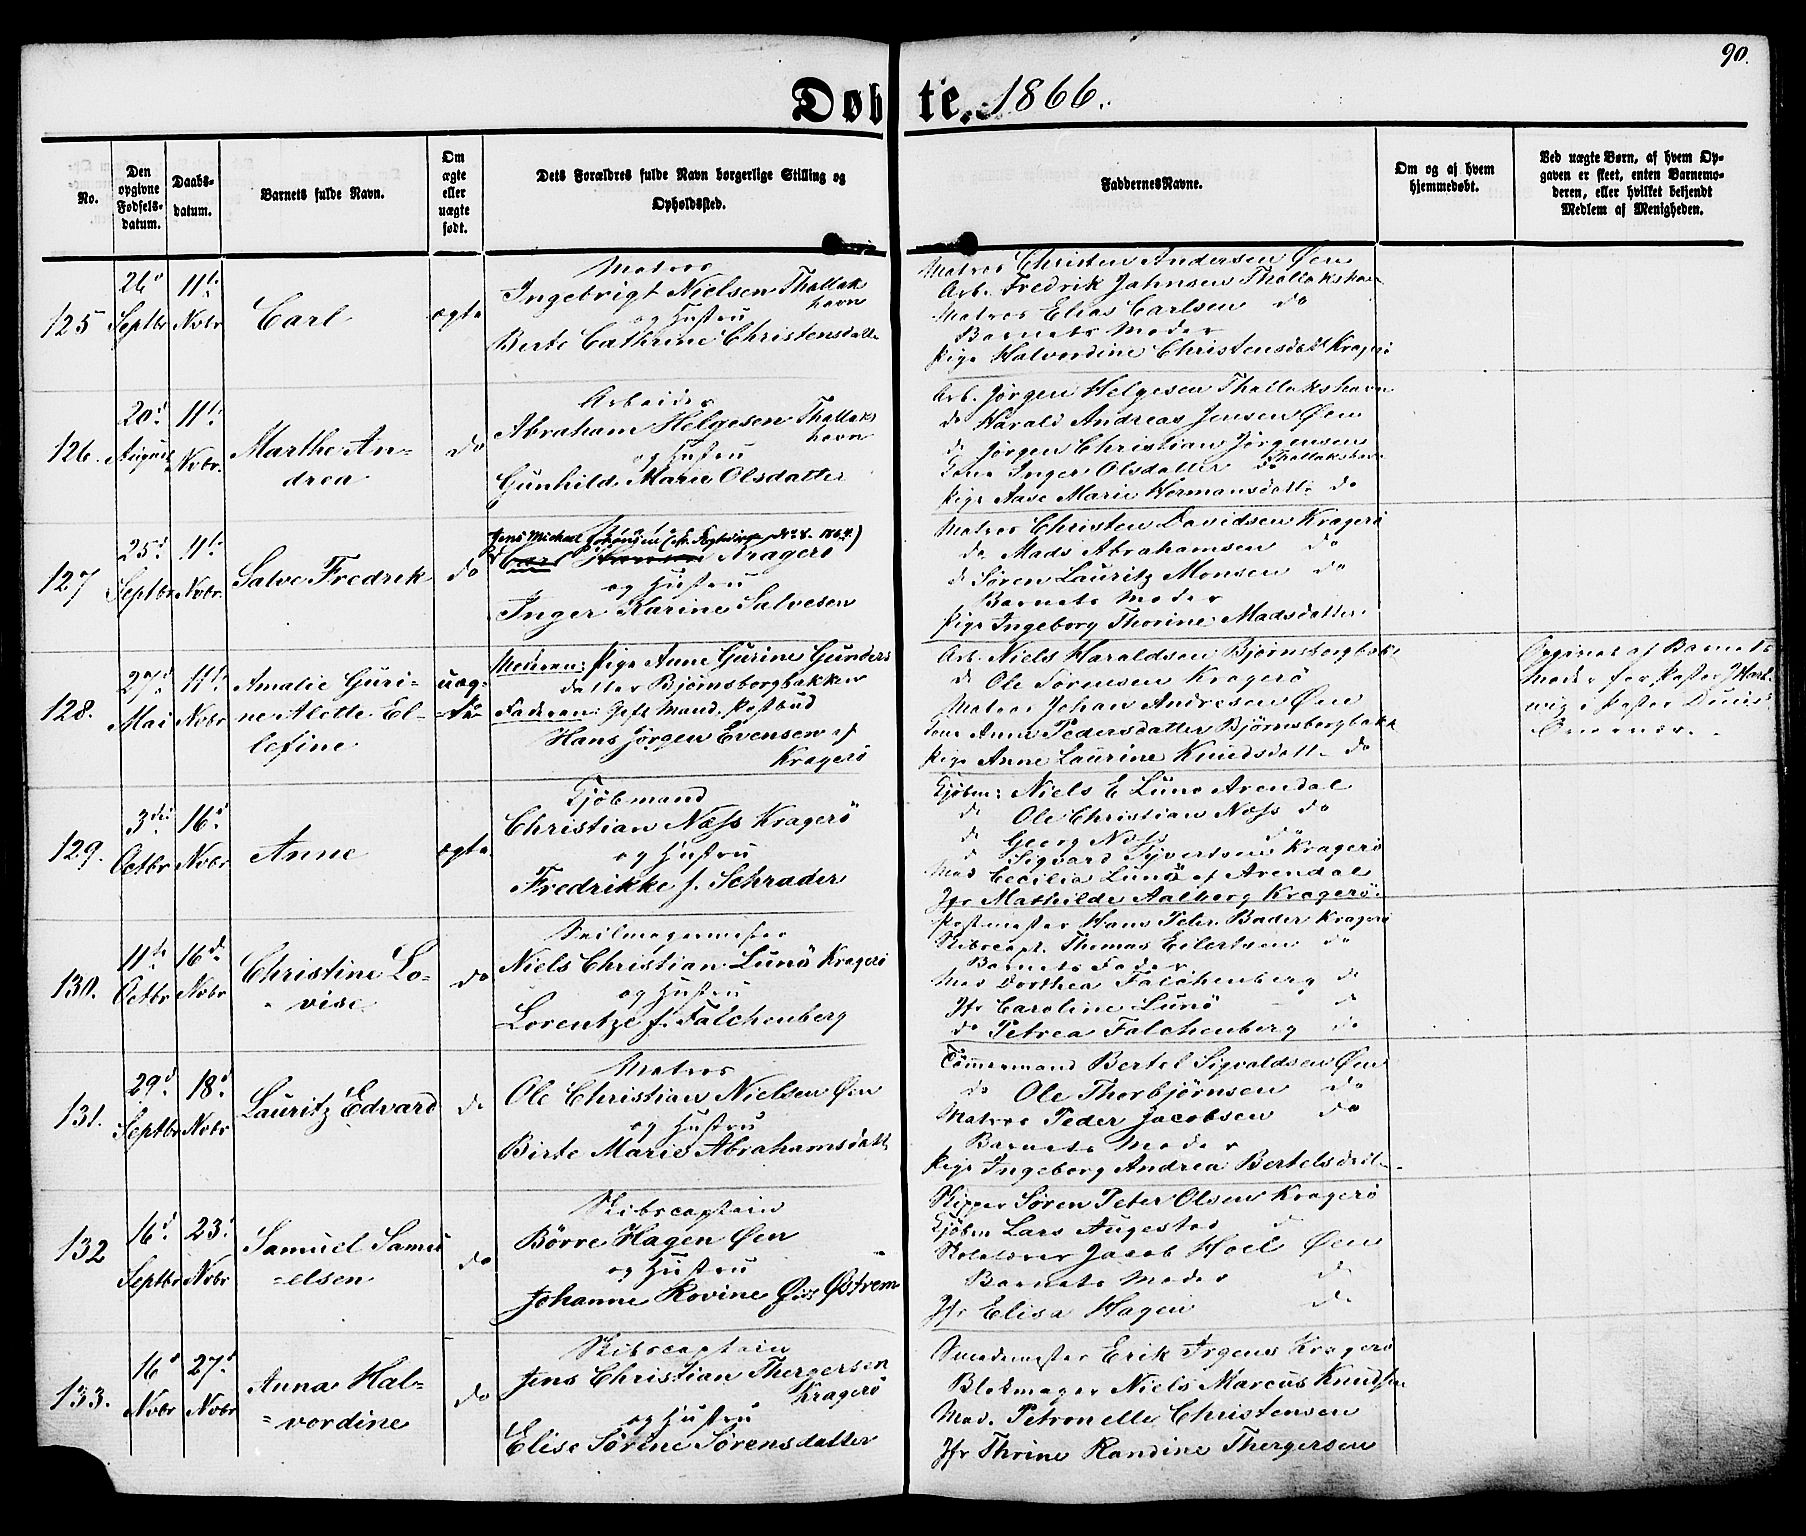 90.
Døbte. 1866.
No.
Den opgivne Fødselsdatum.
Daabsdatum.
Barnets fulde Navn.
Om ægte eller uægte født.
Dets Forældres fulde Navn borgerlige Stilling og Opholdssted.
Faddernes Navne.
Om og af hvem hjemmedøbt.
Ved uægte Børn, af hvem Opgaven er skeet, enten Barnemoderen, eller hvilket bekjendt Medlem af Menigheden.
125
26d Septbr
11te Novbr
Carl
ægte
Matros
Ingebrigt Nielsen Thallakshavn
og Hustru
Berte Cathrine Christensdatter
Matros Christen Andersen Øen
Arb. Fredrik Jahnsen Thallakshavn
Matros Elias Carlsen do
Barnets Moder
Pige Halvordine Christensdatt Kragerø
126.
20d August
11te Novbr.
Marthe Andrea
do
Arbeider
Abraham Helgesen Thallakshavn
og Hustru
Gunhild Marie Olsdatter
Arb. Jørgen Helgesen Thallakshavn
do Harald Andreas Jensen Øen
do Jørgen Christian Jørgensen
Kone Inger Olsdatter Thallakshavn
Pige Aase Marie Hermansdatt do
127
25d Septbr
11te Novbr.
Salve Fredrik
do
Jens Michael
Kragerø
og Hustru
Inger Karine Salvesen
Matros Christen Davidsen Kragerø
do Mads Abrahamsen do
do Søren Lauritz Monsen do
Barnets Moder
Pige Ingeborg Thorine Madsdatter
128.
27d Mai
11te Novbr
Amalie Gurine Alette Ellefine
uægte
Moderen: Pige Anne Gurine Gundersdatter Bjørnsborgbakken
Faderen: Gift Mand. Postbud
Hans Jørgen Evensen af Kragerø
Arb. Niels Haraldsen Bjørnsborgbak
do Ole Sørensen Kragerø
Matros Johan Andresen Øen
Kone Anne Pedersdatter Bjørnsborgbakk
Pige Anne Laurine Knudsdatt do
Opgivet af Barnets
Moder for Pastor Hartwig i Pastor
129.
3die Octbr
16d Novbr
Anne
ægte
Kjøbmand
Christian Næss Kragerø
og Hustru
Fredrikke f. Schrader
Kjøbm: Niels E Lunø Arendal
do Ole Christian Næss do
do Georg Næss
do Sigvard Syvertsen Kragerø
Mad Cecilia Lunø af Arendal
Jfr Mathilde Aalborg Kragerø
130.
11te Octbr
16de Novbr
Christine Lovise
do
Seilmagermester
Niels Christian Lunø Kragerø
og Hustru
Lorentze f. Falchenberg
Postmester Hans Peter Bader Kragerø
Skibscapt. Thomas Eilertsen do
Barnets Fader
Mad Dorthea Falchenberg do
Jfr Caroline Lunø do
do Petrea Falchenberg do
131.
29d Septbr
18d Novbr
Lauritz Edvard
do
Matros
Ole Christian Nielsen Øen
og Hustru
Birte Marie Abrahamsdatt
Tømmermand Bertel Sigvaldsen Øen
do Ole Thorbjørnsen do
Matros Peder Jacobsen do
Barnets Moder
Pige Ingeborg Andrea Bertelsdatt
132
16d Septbr
23d Novbr
Samuel Samuelsen
do
Skibscaptein
Børre Hagen Øen
og Hustru
Johanne Rovine Østrem
Skipper Søren Peter Olsen Kragerø
Kjøbm Lars Augestad do
Skolelærer Jacob Hoel Øen
Barnets Moder do
Jfr Elisa Hagen do
133.
16d Novbr
27d Novbr
Anna Halvordine
do
Skibscaptein
Jens Christian Thergersen Kragerø
og Hustru
Elise Sørine Sørensdatter
Smedemester Erik Irgens Kragerø
Blokmager Niels Marcus Knudsen
Mad. Petronelle Christensen
Jfr Thrine Randine Thergersen